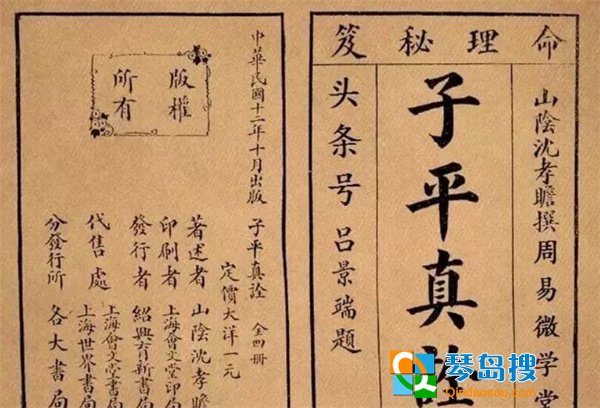 命理秘笈
山陰沈孝瞻撰周易微学堂
子平真詮
头条号吕景端題
中華民國十二年十月出版 子平真詮 全四冊
定價大洋一元
版權
所有
著述者 山陰沈孝瞻
印刷者 上海會文堂印局
發行者 紹興育新書局
代售處 上海會文堂書局
上海世界書局
分發行所 各大書局
琴岛搜
Qindaosou.com